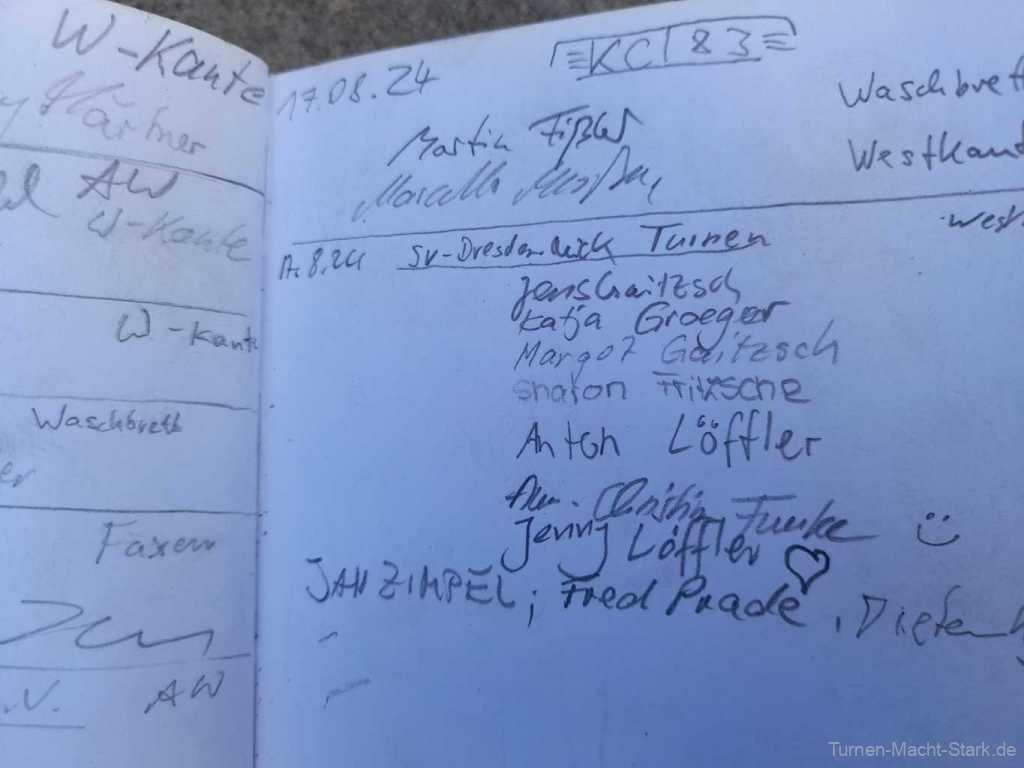 W-Kante
Härtner
AW
W-Kante
W-Kante
Waschbrett
Faxen
.V. AW
17.08.24 KC 83
Martin Waschbrett
Westkant
17.8.24 SV-Dresden Turnen West
Jens Gaitzsch
Katja Groeger
Margot Gaitzsch
Sharon Fritzsche
Anton Löffler
Christin Funke
Jenny Löffler
JAN ZIMPEL; Fred Prade,
Turnen-Macht-Stark.de